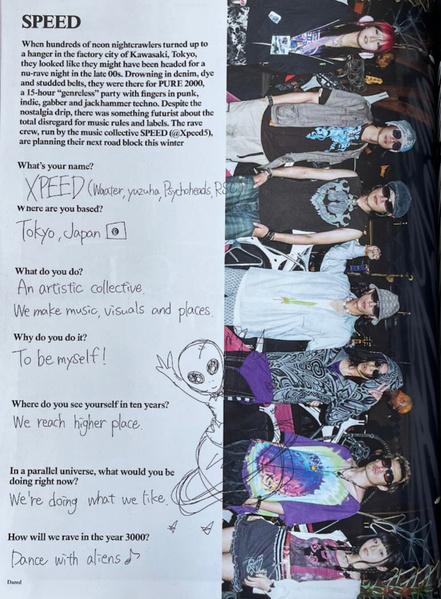 SPEED
When hundreds of neon nightcrawlers turned up to
a hanger in the factory city of Kawasaki, Tokyo,
they looked like they might have been headed for a
nu-rave night in the late 00s. Drowning in denim, dye
and studded belts, they were there for PURE 2000,
a 15-hour “genreless” party with fingers in punk,
indie, gabber and jackhammer techno. Despite the
nostalgia drip, there was something futurist about the
total disregard for music rules and labels. The rave
crew, run by the music collective SPEED (@Xpeed5),
are planning their next road block this winter
What's your name?
XPEED (Waater, yuzuha, Psychoheads,
Where are you based?
Tokyo, Japan
What do you do?
An artistic collective.
We make music, visuals and places.
Why do you do it?
To be myself!
Where do you see yourself in ten years?
We reach higher place.
In a parallel universe, what would you be
doing right now?
We're doing what we like.
How will we rave in the year 3000?
Dance with aliens♪
Dazed